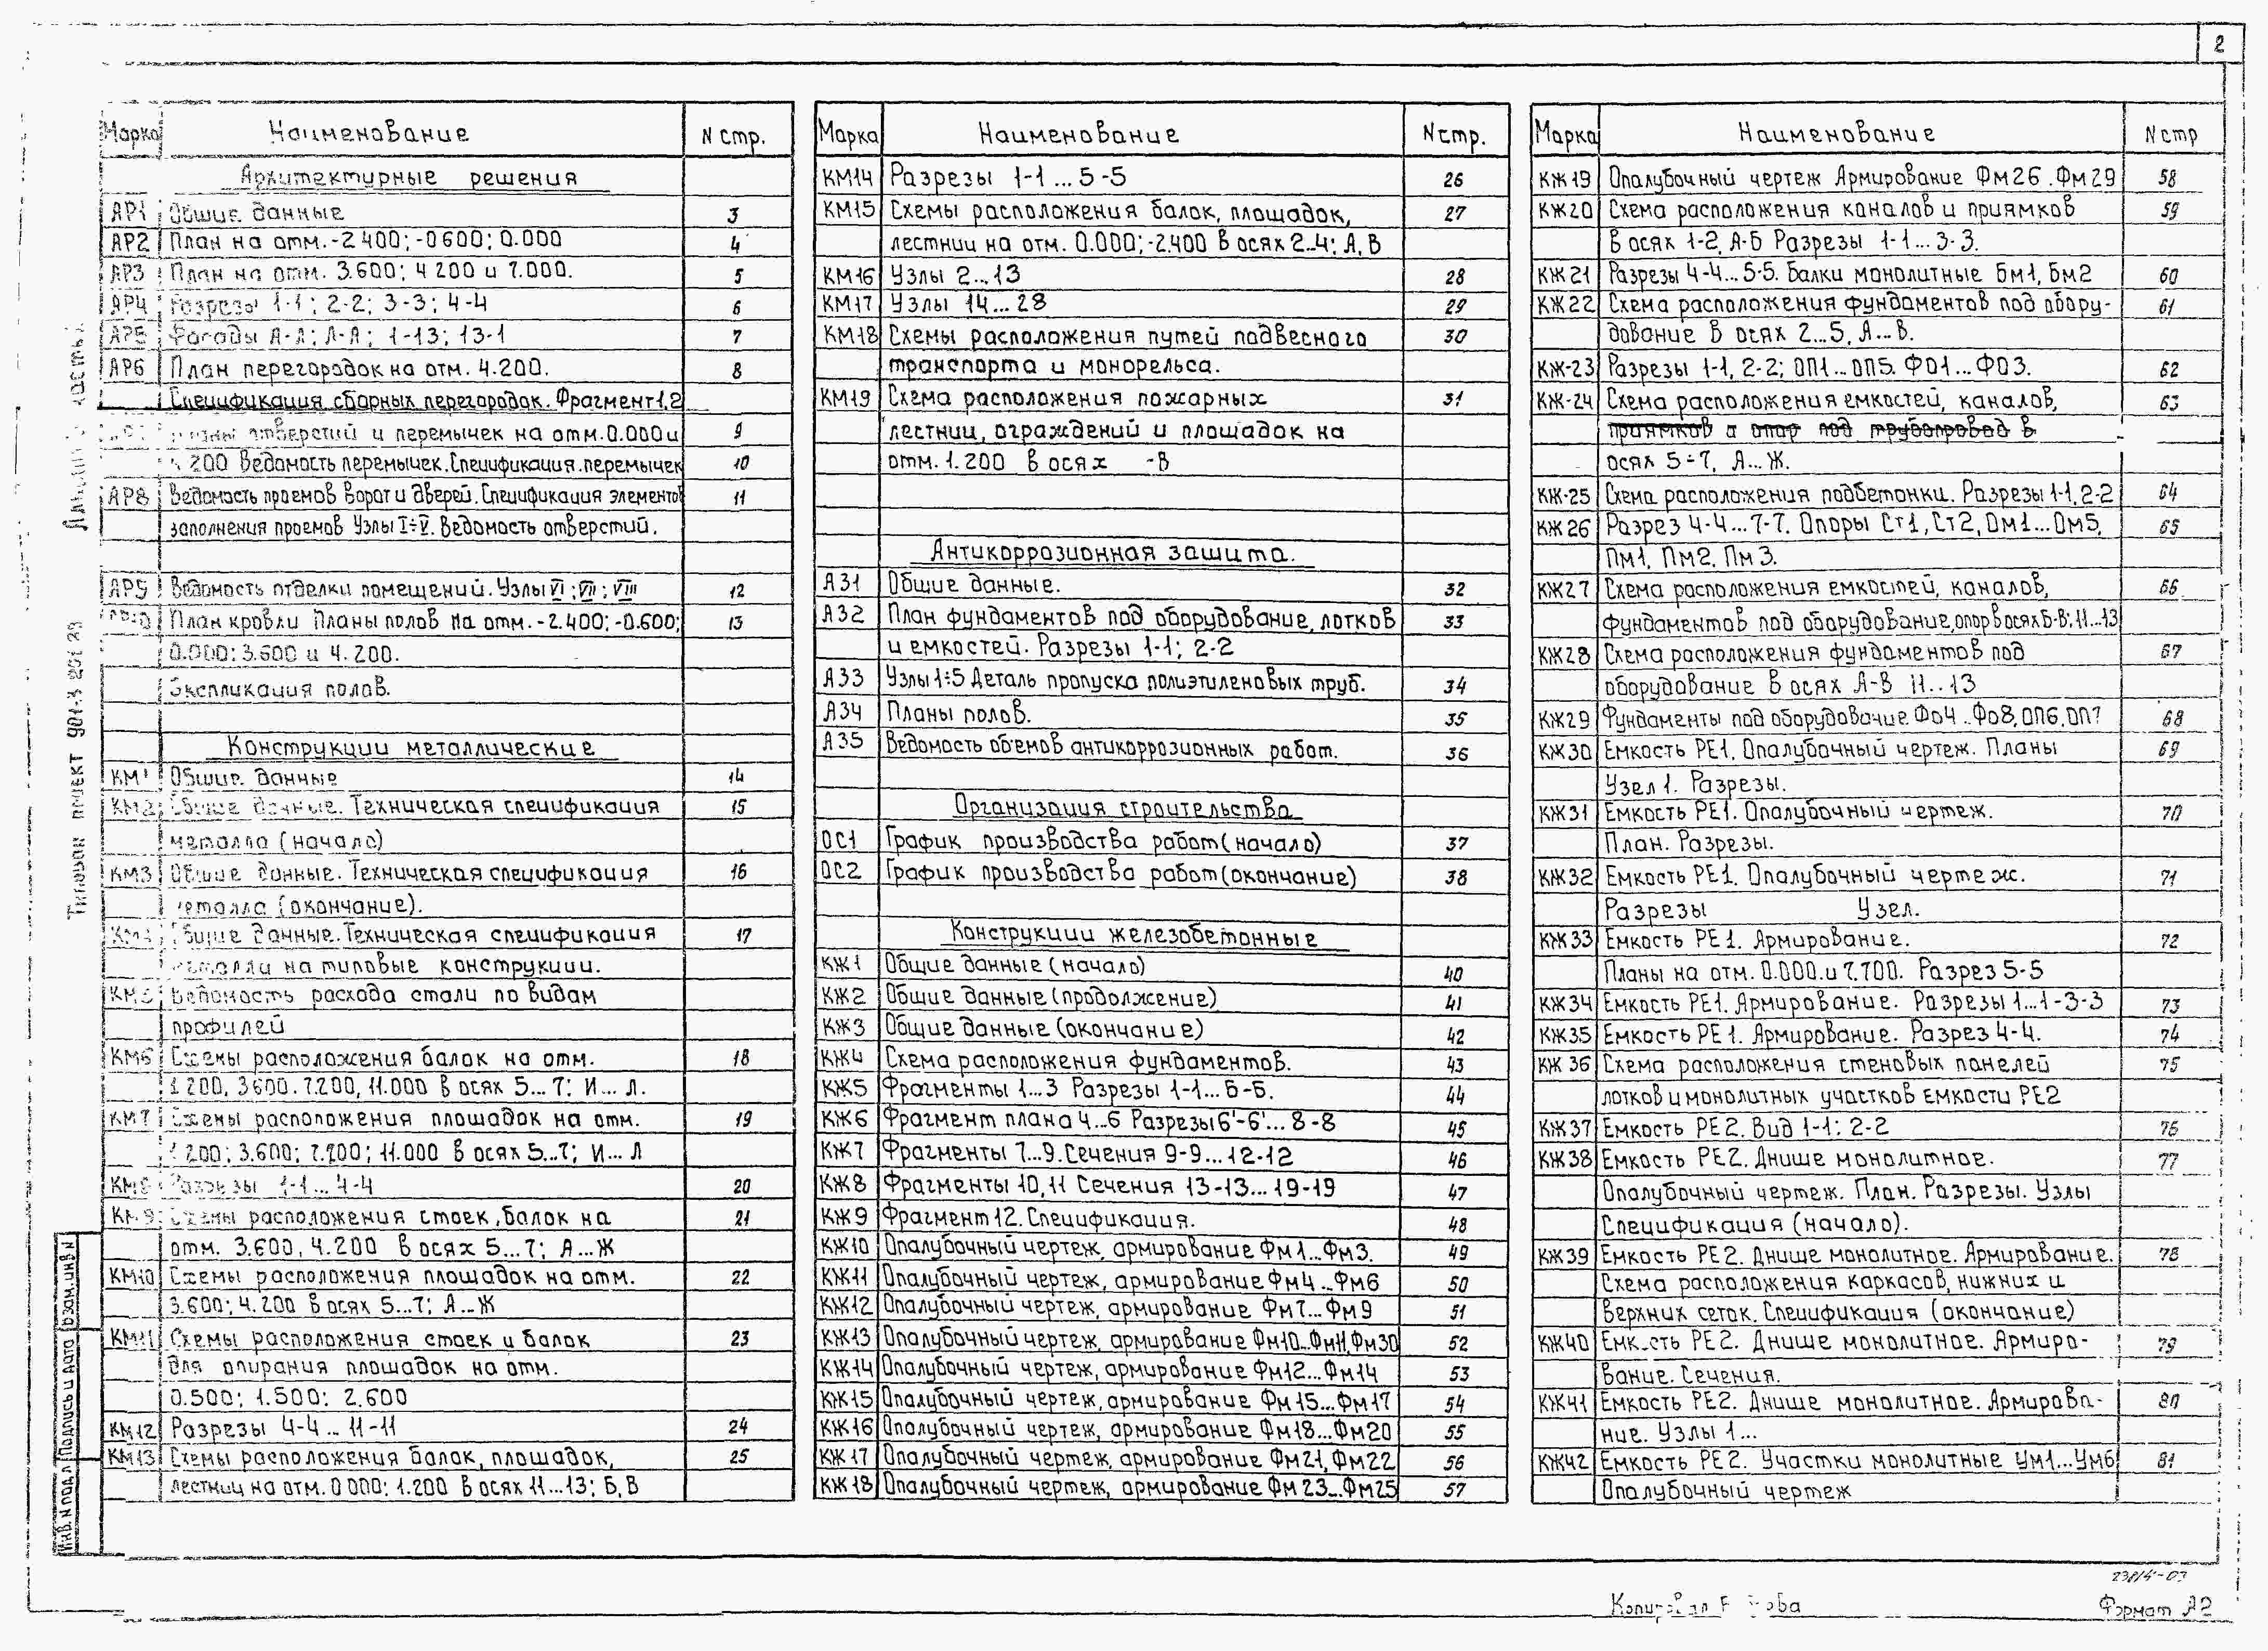 2
Марка Наименование N стр.
Архитектурные решения
АР1 Общие данные 3
АР2 План на отм. -2 400; -0 600; 0.000 4
АР3 План на отм. 3.600; 4 200 и 7.000. 5
АР4 Разрезы 1-1; 2-2; 3-3; 4-4 6
АР5 Фасады А-Л; Л-А; 1-13; 13-1 7
АР6 План перегородок на отм. 4.200. 8
Спецификация сборных перегородок. Фрагмент 1,2
отверстий и перемычек на отм. 0.000 и 9
200 Ведомость перемычек. Спецификация. перемычек 10
АР8 Ведомость проемов ворот и дверей. Спецификация элементов 11
заполнения проемов Узлы I÷V. Ведомость отверстий.
АР9 Ведомость отделки помещений. Узлы VI; VII; VIII 12
План кровли Планы полов на отм. -2.400; -0.600; 13
0.000; 3.600 и 4.200.
Экспликация полов.
Конструкции металлические
КМ1 Общие данные 14
КМ2 Общие данные. Техническая спецификация 15
металла (начало)
КМ3 Общие данные. Техническая спецификация 16
металла (окончание).
КМ4 Общие данные. Техническая спецификация 17
металла на типовые конструкции.
КМ5 Ведомость расхода стали по видам
профилей
КМ6 Схемы расположения балок на отм. 18
1 200, 3600. 7.200, 11.000 в осях 5...7; И...Л.
КМ7 Схемы расположения площадок на отм. 19
1 200; 3.600; 7.200; 11.000 в осях 5...7; И...Л
КМ8 Разрезы 1-1...4-4 20
КМ9 Схемы расположения стоек, балок на 21
отм. 3.600, 4.200 в осях 5...7; А...Ж
КМ10 Схемы расположения площадок на отм. 22
3.600; 4.200 в осях 5...7; А...Ж
КМ11 Схемы расположения стоек и балок 23
для опирания площадок на отм.
0.500; 1.500; 2.600
КМ12 Разрезы 4-4...11-11 24
КМ13 Схемы расположения балок, площадок, 25
лестниц на отм. 0 000; 1.200 в осях 11...13; Б,В
Марка Наименование N стр.
КМ14 Разрезы 1-1...5-5 26
КМ15 Схемы расположения балок, площадок, 27
лестниц на отм. 0.000; -2.400 в осях 2..4; А,В
КМ16 Узлы 2...13 28
КМ17 Узлы 14...28 29
КМ18 Схемы расположения путей подвесного 30
транспорта и монорельса.
КМ19 Схема расположения пожарных 31
лестниц, ограждений и площадок на
отм. 1.200 в осях -В
Антикоррозионная защита.
АЗ1 Общие данные. 32
АЗ2 План фундаментов под оборудование, лотков 33
и емкостей. Разрезы 1-1; 2-2
АЗ3 Узлы 1÷5 Деталь пропуска полиэтиленовых труб. 34
АЗ4 Планы полов. 35
АЗ5 Ведомость объемов антикоррозионных работ. 36
Организация строительства
ОС1 График производства работ (начало) 37
ОС2 График производства работ (окончание) 38
Конструкции железобетонные
КЖ1 Общие данные (начало) 40
КЖ2 Общие данные (продолжение) 41
КЖ3 Общие данные (окончание) 42
КЖ4 Схема расположения фундаментов. 43
КЖ5 Фрагменты 1...3 Разрезы 1-1...6-6. 44
КЖ6 Фрагмент плана 4...6 Разрезы 6'-6'...8-8 45
КЖ7 Фрагменты 7...9. Сечения 9-9...12-12 46
КЖ8 Фрагменты 10,11 Сечения 13-13...19-19 47
КЖ9 Фрагмент 12. Спецификация. 48
КЖ10 Опалубочный чертеж, армирование Фм1...Фм3. 49
КЖ11 Опалубочный чертеж, армирование Фм4...Фм6 50
КЖ12 Опалубочный чертеж, армирование Фм7...Фм9 51
КЖ13 Опалубочный чертеж, армирование Фм10...Фм11, Фм30 52
КЖ14 Опалубочный чертеж, армирование Фм12...Фм14 53
КЖ15 Опалубочный чертеж, армирование Фм15...Фм17 54
КЖ16 Опалубочный чертеж, армирование Фм18...Фм20 55
КЖ17 Опалубочный чертеж, армирование Фм21, Фм22 56
КЖ18 Опалубочный чертеж, армирование Фм23...Фм25 57
Марка Наименование N стр
КЖ19 Опалубочный чертеж Армирование Фм26. Фм29 58
КЖ20 Схема расположения каналов и приямков 59
в осях 1-2, А-Б Разрезы 1-1...3-3.
КЖ21 Разрезы 4-4...5-5. Балки монолитные Бм1, Бм2 60
КЖ22 Схема расположения фундаментов под обору- 61
дование в осях 2...5, А...В.
КЖ-23 Разрезы 1-1, 2-2; ОП1...ОП5. ФО1...ФО3. 62
КЖ-24 Схема расположения емкостей, каналов, 63
приямков и опор под трубопровод в
осях 5÷7, А...Ж.
КЖ-25 Схема расположения подбетонки. Разрезы 1-1, 2-2 64
КЖ26 Разрез 4-4...7-7. Опоры Ст1, Ст2, Ом1...Ом5, 65
Пм1, Пм2, Пм3.
КЖ27 Схема расположения емкостей, каналов, 66
фундаментов под оборудование, опор в осях Б-В; 11...13
КЖ28 Схема расположения фундаментов под 67
оборудование в осях А-В 11..13
КЖ29 Фундаменты под оборудование Фо4..Фо8, ОП6, ОП7 68
КЖ30 Емкость РЕ1. Опалубочный чертеж. Планы 69
Узел 1. Разрезы.
КЖ31 Емкость РЕ1. Опалубочный чертеж. 70
План. Разрезы.
КЖ32 Емкость РЕ1. Опалубочный чертеж. 71
Разрезы Узел.
КЖ33 Емкость РЕ1. Армирование. 72
Планы на отм. 0.000 и 7.700. Разрез 5-5
КЖ34 Емкость РЕ1. Армирование. Разрезы 1...1-3-3 73
КЖ35 Емкость РЕ1. Армирование. Разрез 4-4. 74
КЖ36 Схема расположения стеновых панелей 75
лотков и монолитных участков емкости РЕ2
КЖ37 Емкость РЕ2. Вид 1-1; 2-2 76
КЖ38 Емкость РЕ2. Днище монолитное. 77
Опалубочный чертеж. План. Разрезы. Узлы
Спецификация (начало).
КЖ39 Емкость РЕ2. Днище монолитное. Армирование. 78
Схема расположения каркасов, нижних и
верхних сеток. Спецификация (окончание)
КЖ40 Емкость РЕ2. Днище монолитное. Армиро- 79
вание. Сечения.
КЖ41 Емкость РЕ2. Днище монолитное. Армирова- 80
ние. Узлы 1...
КЖ42 Емкость РЕ2. Участки монолитные Ум1...Ум6 81
Опалубочный чертеж
Типовой проект 901-3
Инв. N подл Подпись и дата Взам. инв N
Копировал
Формат А2